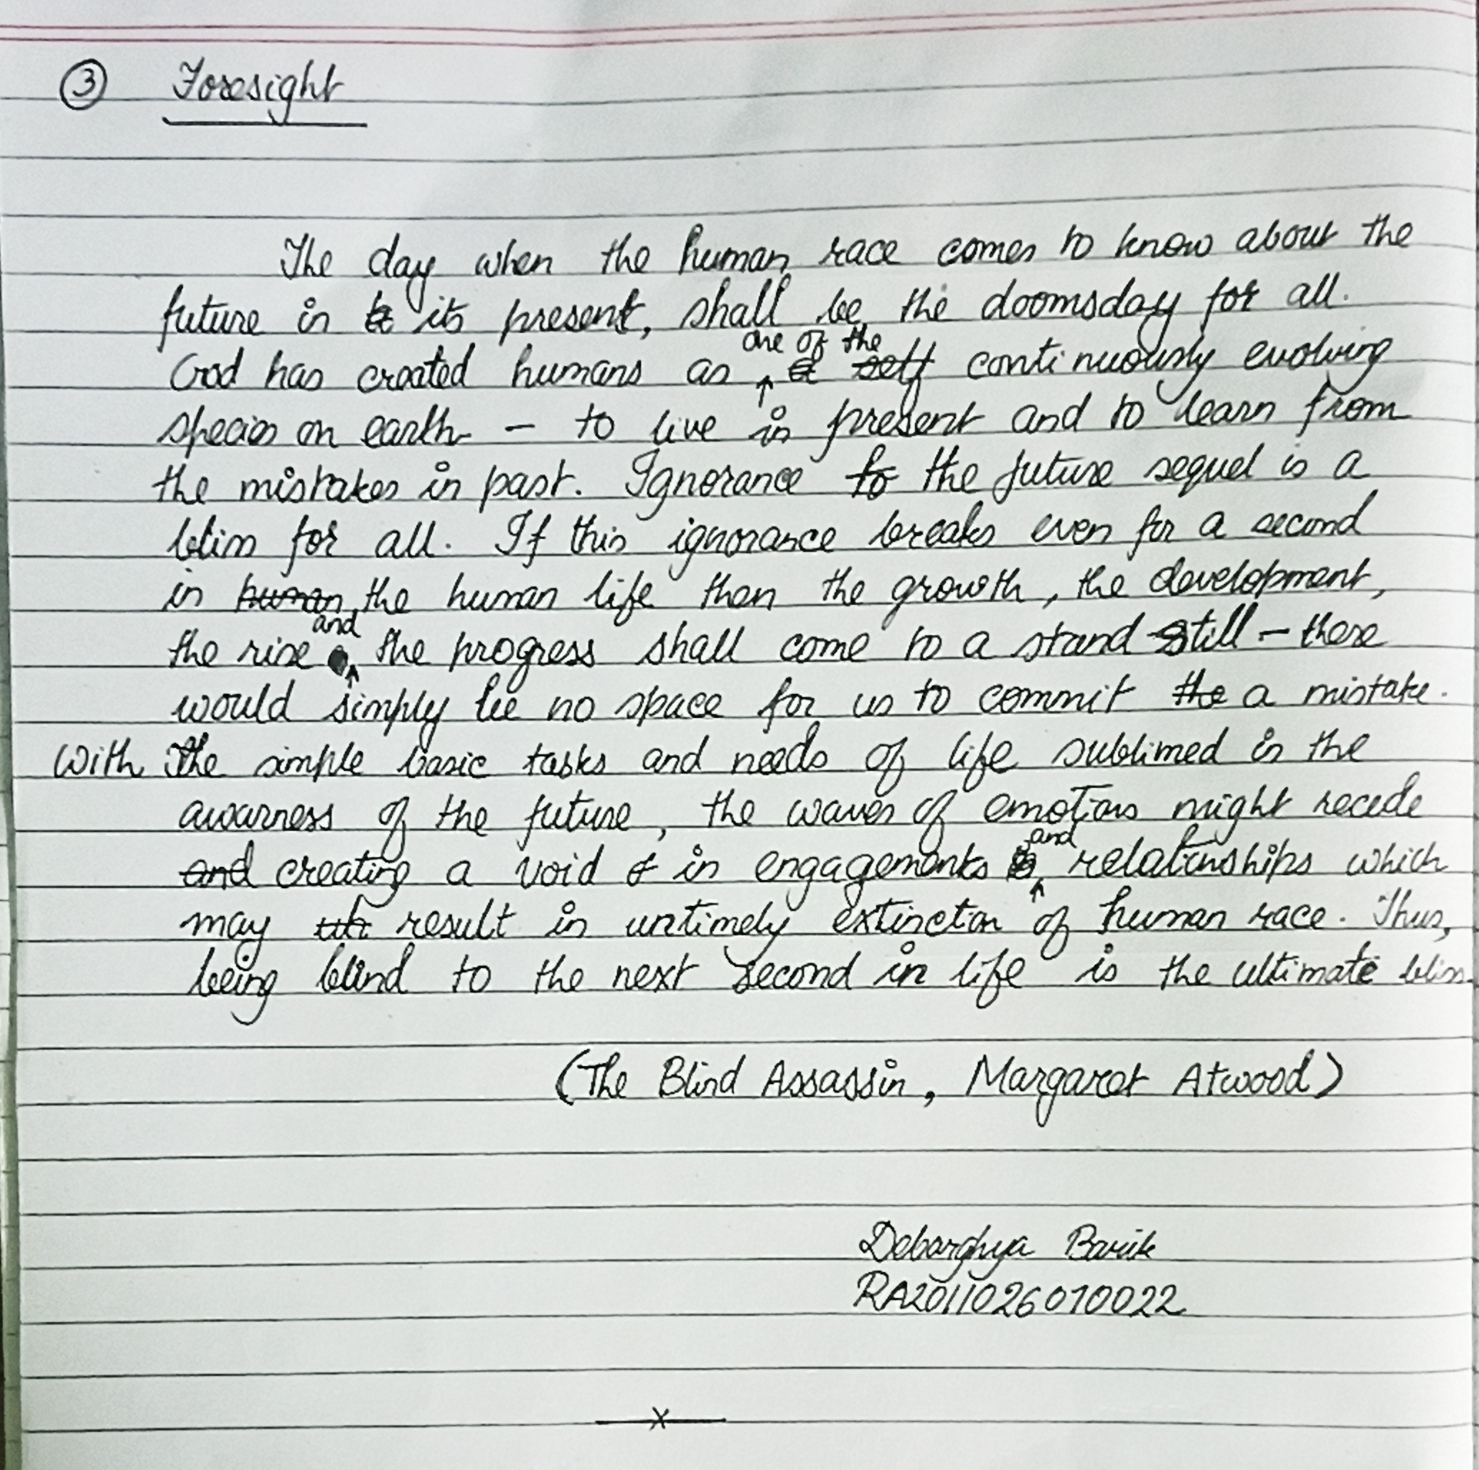 ③ Foresight
The day when the human race comes to know about the
future in its present, shall be the doomsday for all.
God has created humans as one of the continuously evolving
species on earth – to live in present and to learn from
the mistakes in past. Ignorance to the future sequel is a
blim for all. If this ignorance breaks even for a second
in the human life then the growth, the development,
the rise and the progress shall come to a stand still – there
would simply be no space for us to commit a mistake.
With the simple basic tasks and needs of life sublimed in the
awarness of the future, the waves of emotions might recede
creating a void in engagements and relationships which
may result in untimely extinction of human race. Thus,
being blind to the next second in life is the ultimate blim
(The Blind Assassin, Margaret Atwood)
Debarghya Barik
RA2011026010022
x